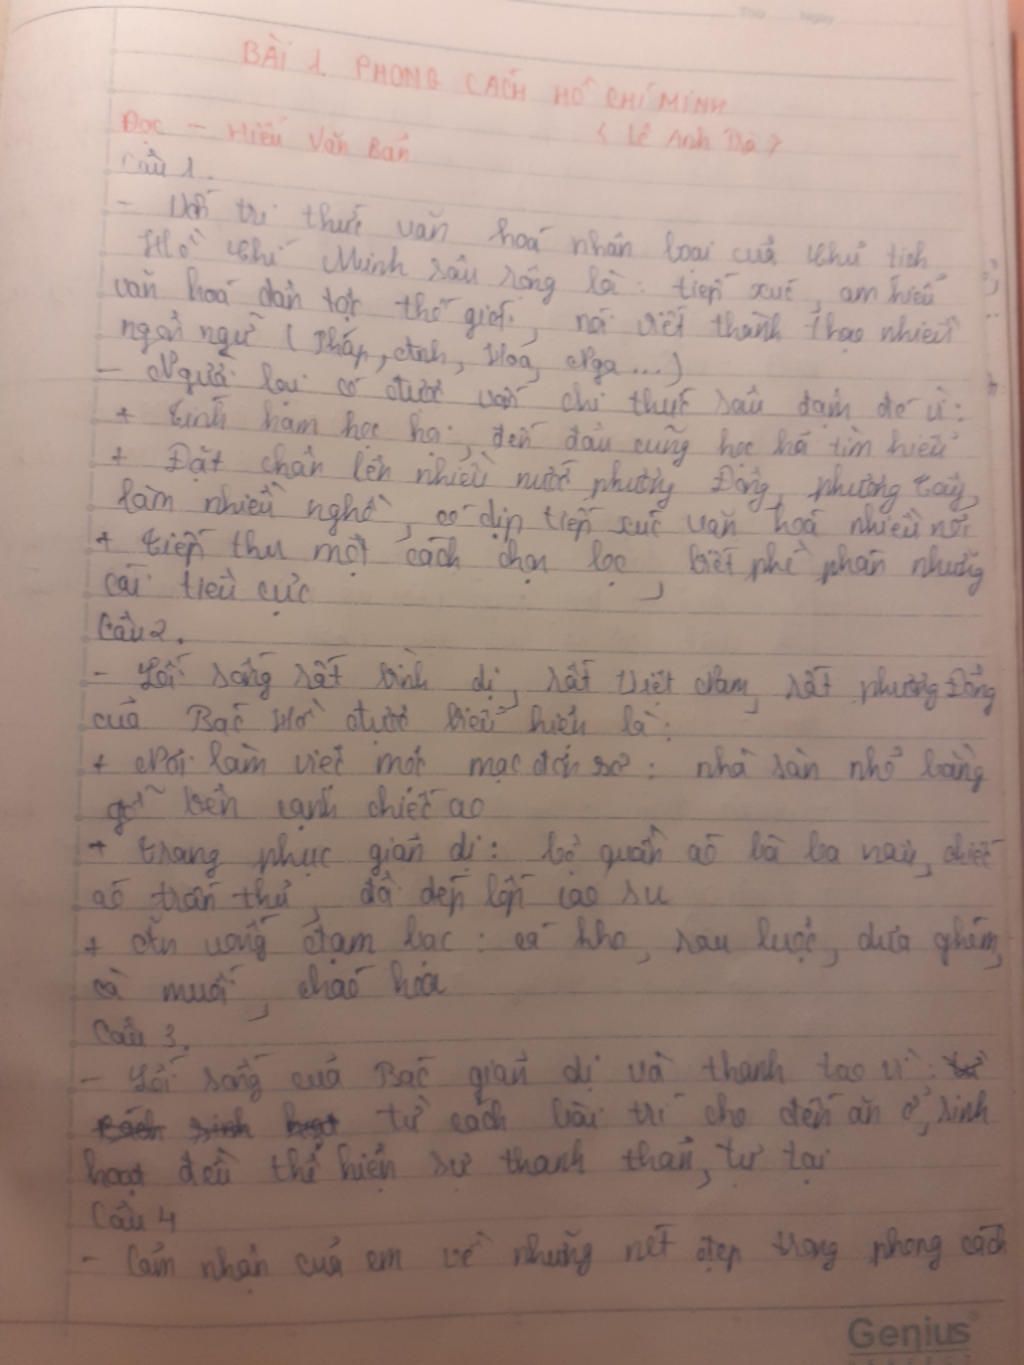 Thứ Ngày
BÀI 1. PHONG CÁCH HỒ CHÍ MINH
Đọc - Hiểu Văn Bản
( Lê Anh Trà )
Câu 1.
- Vốn tri thức văn hoá nhân loại của chủ tịch
Hồ Chí Minh sâu rộng là: tiếp xúc, am hiểu
văn hoá dân tộc thế giới, nói viết thành thạo nhiều
ngoại ngữ (Pháp, Anh, Hoa, Nga ...)
- Người lại có được vốn chi thức sâu đậm đó vì:
+ Tinh ham học hỏi, đến đâu cũng học hỏi tìm hiểu
+ Đặt chân lên nhiều nước phương Đông, phương Tây,
làm nhiều nghề, có dịp tiếp xúc văn hoá nhiều nơi
+ Tiếp thu một cách chọn lọc, biết phê phán những
cái tiêu cực
Câu 2.
- Lối sống rất bình dị, rất Việt Nam, rất phương Đông
của Bác Hồ được biểu hiện là:
+ Nơi làm việc mộc mạc đơn sơ: nhà sàn nhỏ bằng
gỗ bên cạnh chiếc ao
+ Trang phục giản dị: bộ quần áo bà ba nâu, chiếc
áo trấn thủ, đôi dép lốp cao su
+ Ăn uống đạm bạc: cá kho, rau luộc, dưa ghém,
cà muối, cháo hoa
Câu 3.
- Lối sống của Bác giản dị và thanh tao vì:
từ cách bài trí cho đến ăn ở, sinh
hoạt đều thể hiện sự thanh thản, tự tại
Câu 4
- Cảm nhận của em về những nét đẹp trong phong cách
Genius